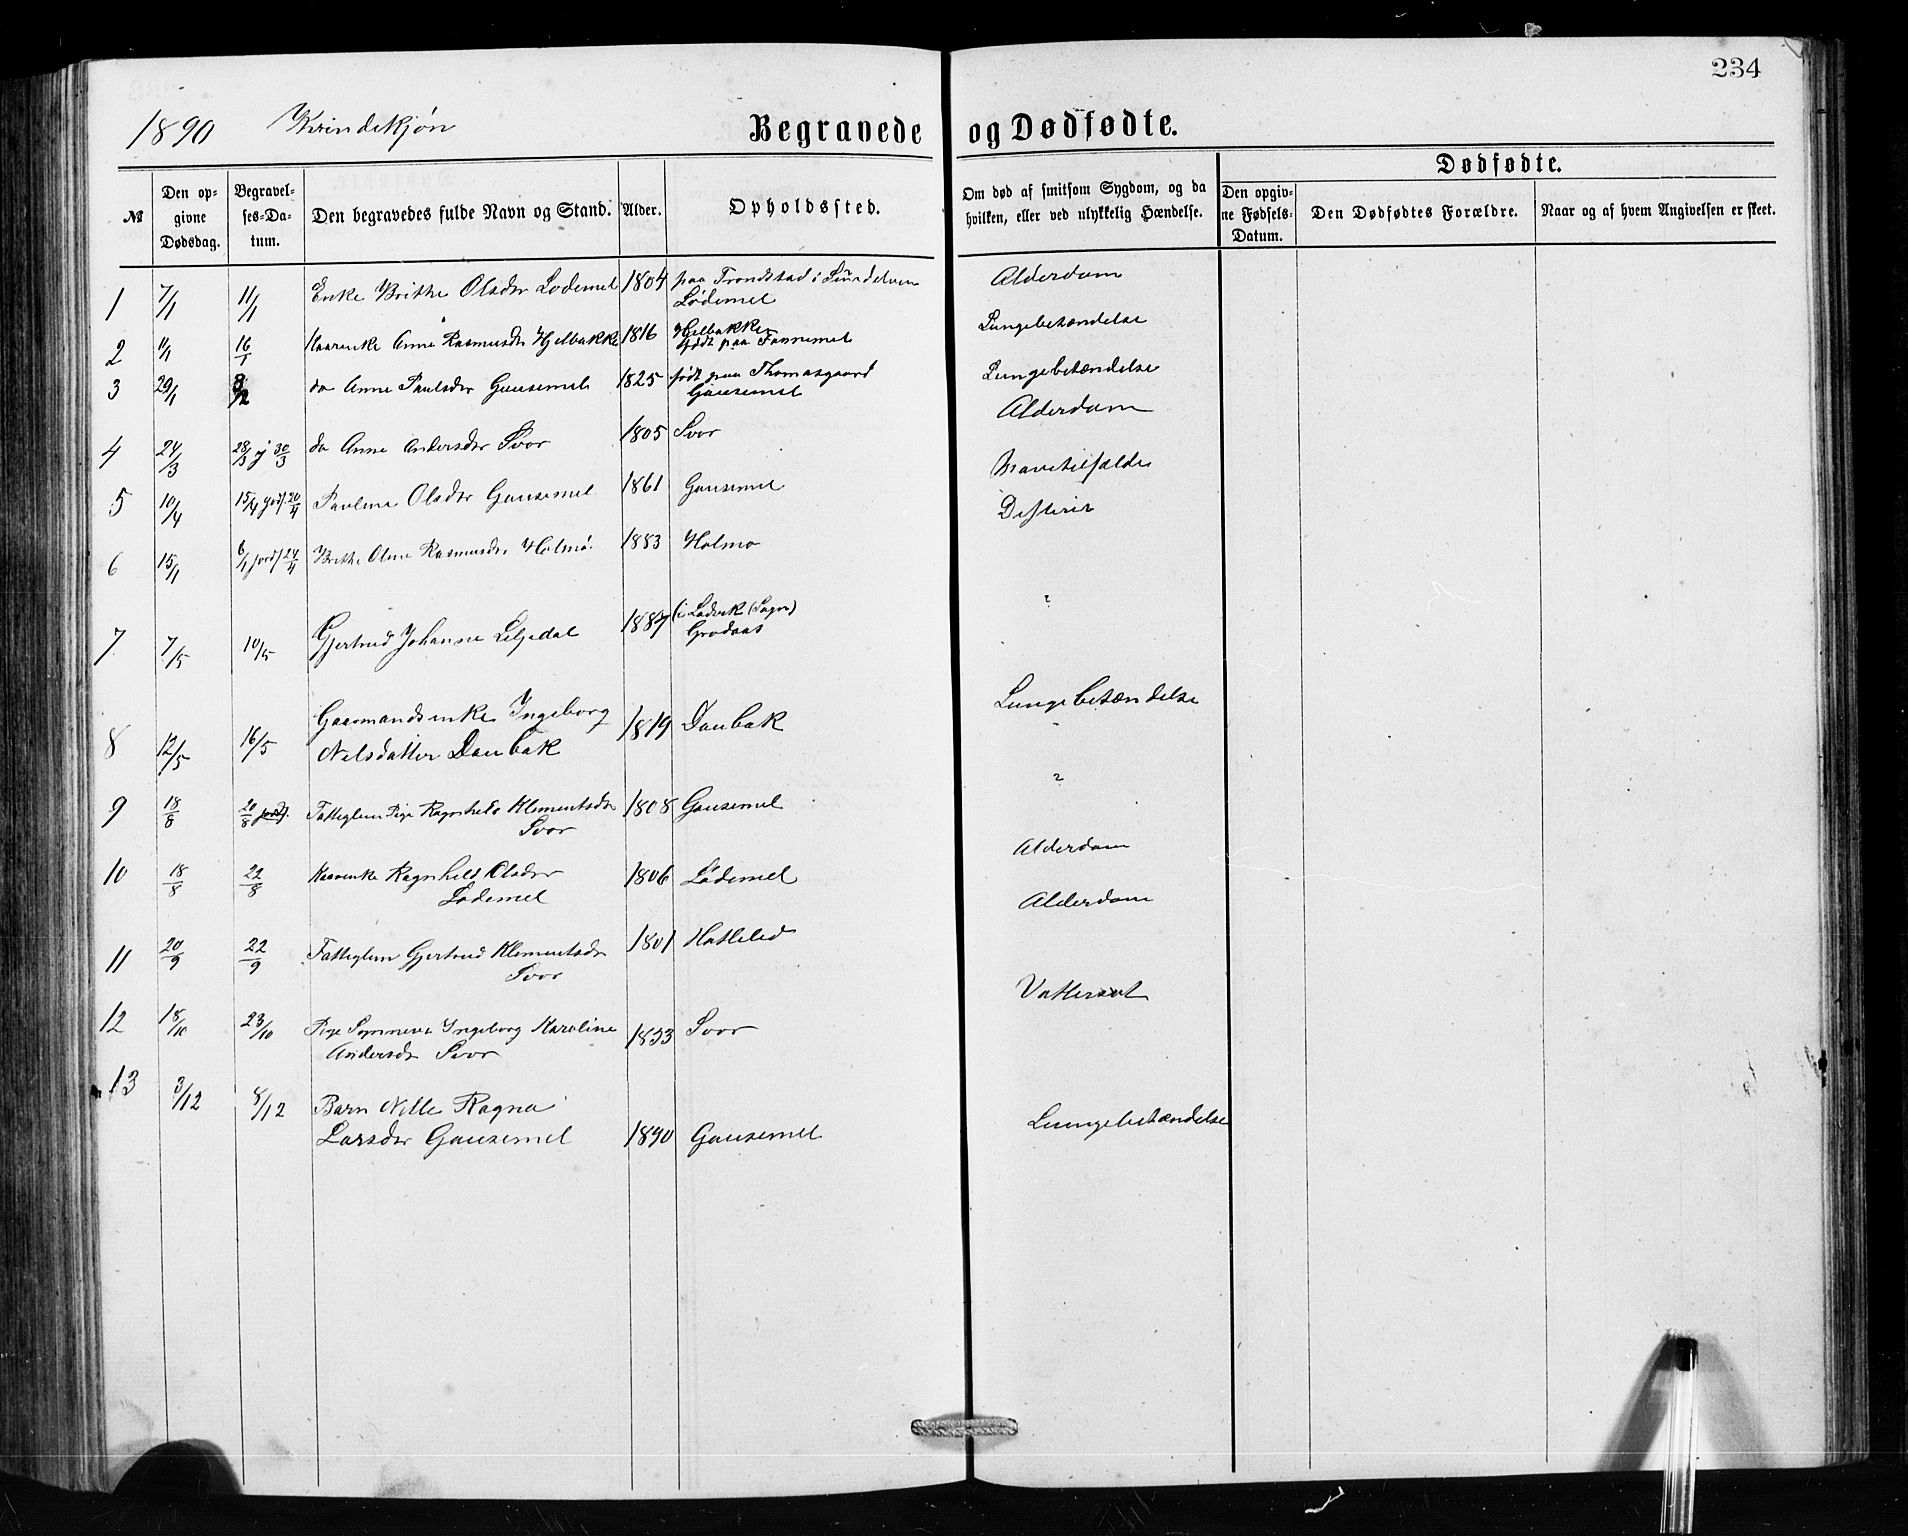 234
1890 Kvindekjøn
Begravede og Dødfødte.
Dødfødte.
№ Den op-givne Dødsdag. Begravel-ses-Da-tum. Den begravedes fulde Navn og Stand. Alder. Opholdssted. Om død af smitsom Sygdom, og da hvilken, eller ved ulykkelig Hændelse. Den opgiv-ne Fødsels-Datum. Den Dødfødtes Forældre. Naar og af hvem Angivelsen er skeet.
1 7/1 11/1 Enke Brithe Olsdr Lødemel 1804 paa Trondstad i
Lødemel Alderdom
2 11/1 16/1 Kaarenke Anne Rasmusdr Hjelbakke 1816 Helbakke Lungebetændelse
født paa
3 29/1 3/2 do Anne Paulsdr Gausemel 1825 født paa Thomasgaard Lungebetændelse
Gausemel
4 24/3 28/3 j 30/3 do Anne Andersdr Svor 1805 Svor Alderdom
5 10/4 15/4 jordf. 20/4 Pauline Olsdr Gausemel 1861 Gausemel Mavetilfælde
6 15/1 6/1 jordf 24/1 Brithe Oline Rasmusdr Holmø. 1883 Holmø Difterit
7 7/5 10/5 Gjertrud Johanne Liljedal 1887 (i Ladvik (Sogn) ?
Grodaas
8 12/5 16/5 Gaarmandsenke Ingeborg
Nilsdatter Daubak 1819 Daubak Lungebetændelse
9 18/8 20/8 jordf. Fattiglem Pige Ragnhild Klementsdr 1808 Gausemel ?
Svor
10 18/8 22/8 Kaarenke Ragnhild Olsdr 1806 Lødemel Alderdom
Lødemel
11 20/9 22/9 Fattiglem Gjertrud Klementsdr 1801 Hatleled Alderdom
Svor
12 18/10 23/10 Pige Synneva Ingeborg Karoline 1853 Svor Vattersot
Andersdr Svor
13 3/12 8/12 Barn Nille Ragna
Larsdr Gausemel 1890 Gausemel Lungebetændelse